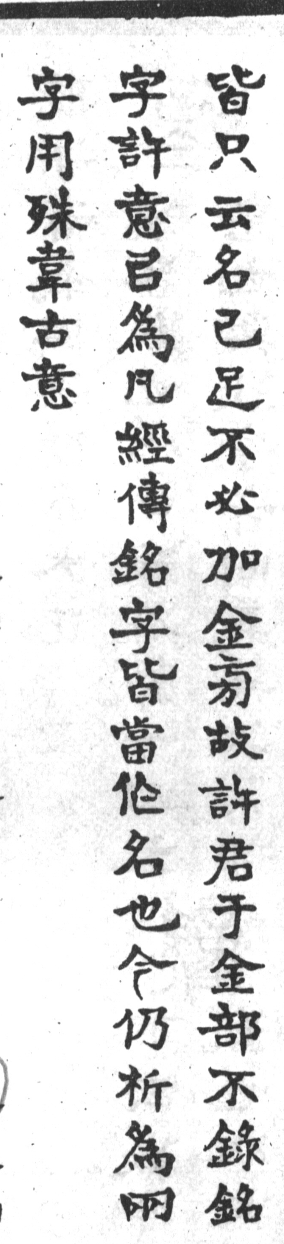 皆只云名已足不必加金㫄故許君于金部不錄銘
字許意㠯為凡經傳銘字皆當作名也今仍析為㓁
字用殊韋古意